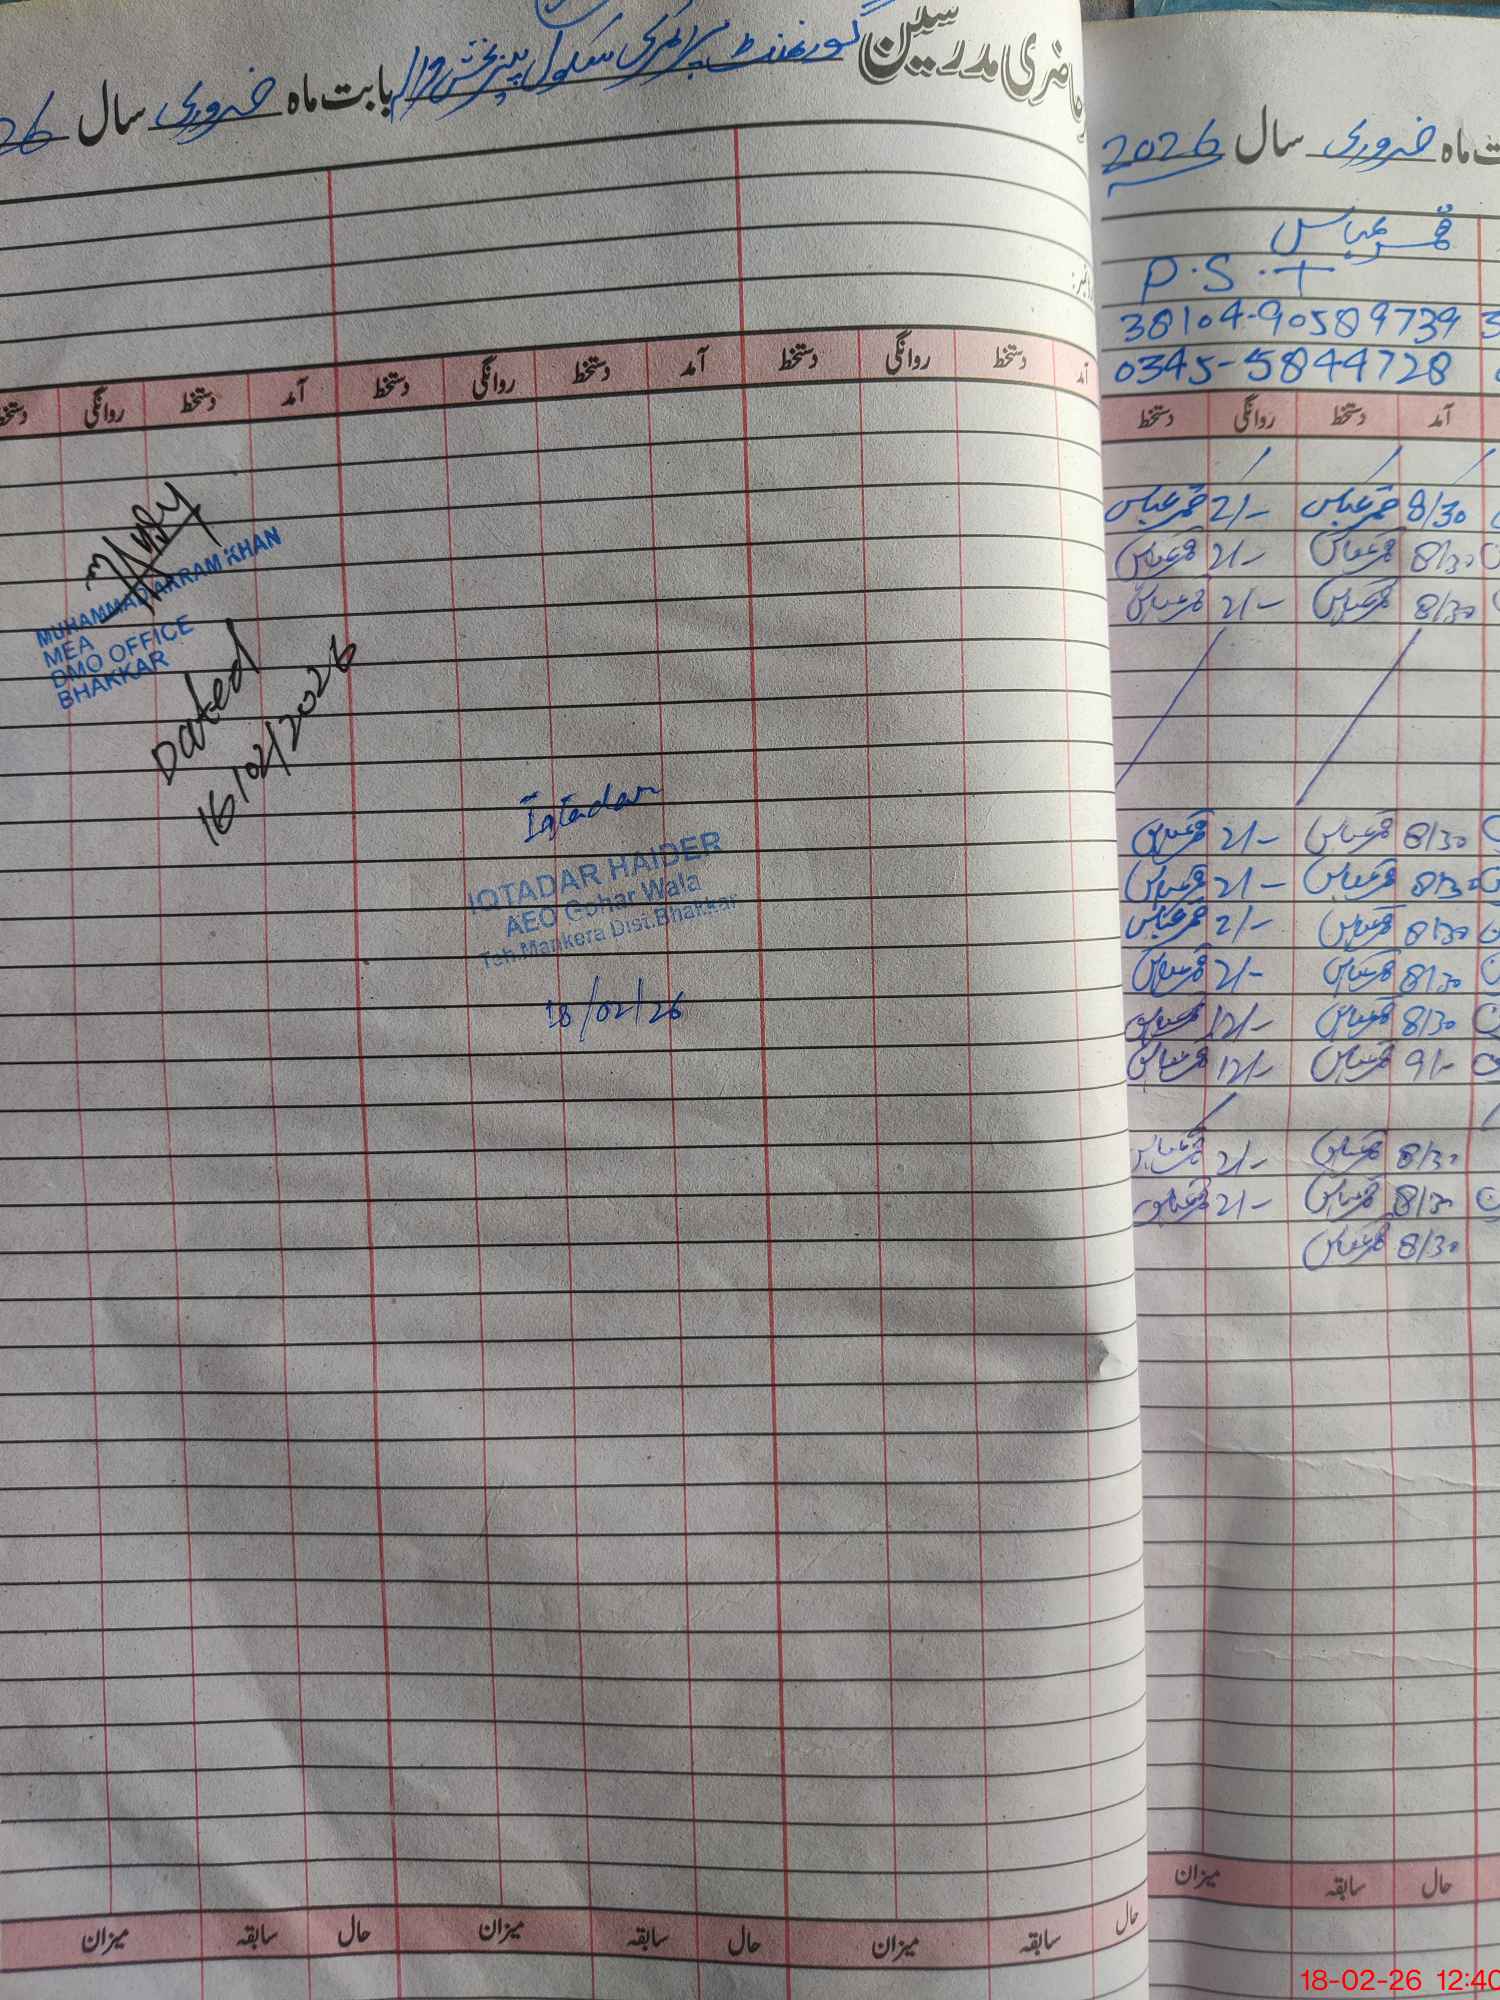 حاضری مدرسین گورنمنٹ پرائمری سکول پیر بخش والا بابت ماہ فروری سال 26
آمد دستخط روانگی دستخط آمد دستخط روانگی دستخط آمد دستخط روانگی دستخط
MUHAMMAD AKRAM KHAN
MEA
DMO OFFICE
BHAKKAR
Dated
16/02/2026
Iqtadar
IQTADAR HAIDER
AEO Gohar Wala
Teh.Mankera Dist.Bhakkar
18/02/26
حال سابقہ میزان حال سابقہ میزان حال سابقہ میزان
ت ماہ فروری سال 2026
قمر عباس
P.S.T
38104-90589739
0345-5844728
آمد دستخط روانگی دستخط
8/30 قمر عباس 2/- قمر عباس
8/30 قمر عباس 2/- قمر عباس
8/30 قمر عباس 2/- قمر عباس
8/30 قمر عباس 2/- قمر عباس
8/30 قمر عباس 2/- قمر عباس
8/30 قمر عباس 2/- قمر عباس
8/30 قمر عباس 2/- قمر عباس
8/30 قمر عباس 12/- قمر عباس
9/- قمر عباس 12/- قمر عباس
8/30 قمر عباس 2/- قمر عباس
8/30 قمر عباس 2/- قمر عباس
8/30 قمر عباس
حال سابقہ میزان
18-02-26 12:40